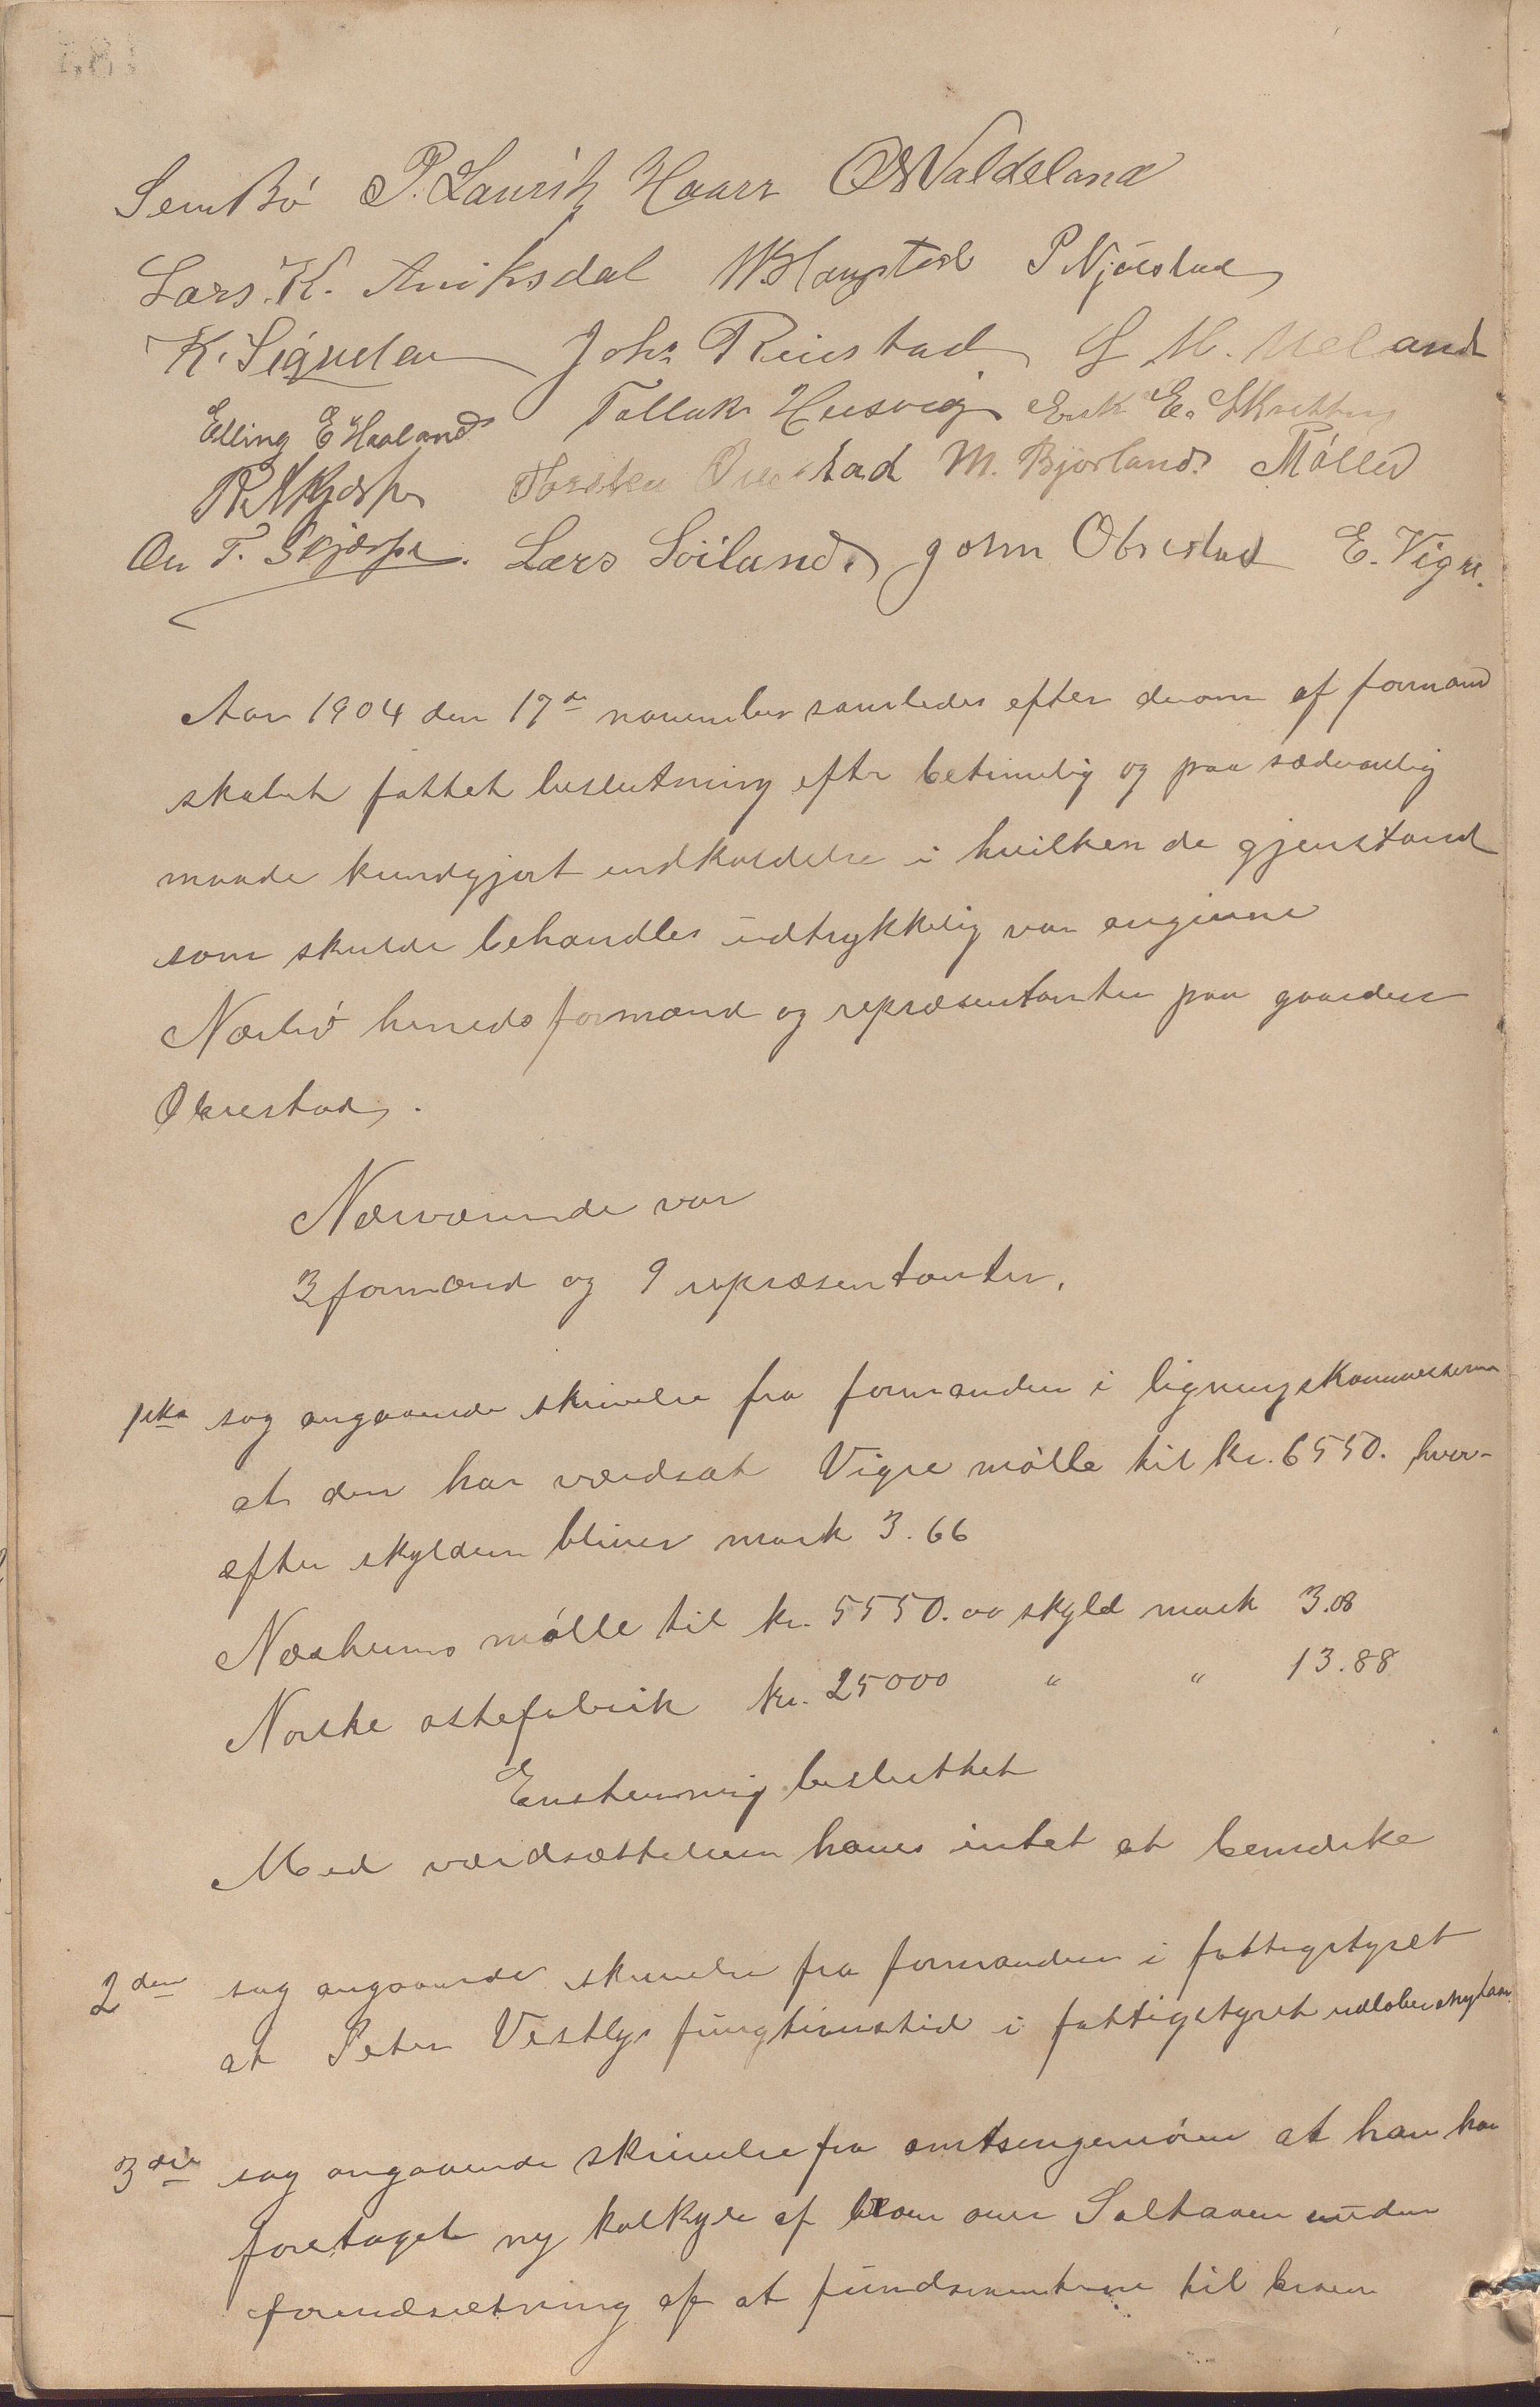 Sem Bø P. Lauritz Haarr OS Valdeland
Lars. K. Aniksdal W. Haugstad P Njølstad
K. Sigualen Johs Reiestad G M. Ueland
Elling E Haaland Tallak Husvig Erik E. Skretting
R. Skjærpe Torsten Obrestad M. Bjorland. Møller
On T. Skjærpe. Lars Søiland. John Obrestad E. Vigre.
Aar 1904 den 17de november samledes efter derom af formand
skabet fattet beslutning efter betimelig og paa sædvanlig
maade kundgjort indkaldelse i hvilken de gjenstand
som skulde behandles udtrykkelig var angivne
Nærbø herreds formænd og repræsentanter paa gaarden
Obrestad.
Nærværende var
3 formænd og 9 repræsentanter.
1ste sag angaaende skrivelse fra formanden i ligningskommissionen
at den har værdsat Vigre mølle til kr. 6550. hvor-
efter skylden bliver mark 3.66
Næsheims mølle til kr. 5550.00 skyld mark 3.08
Norske ostefabrik kr. 25000 " " 13.88
Enstemmig besluttet
Med værdsættelsen haves intet at bemærke
2den sag angaaende skrivelse fra formanden i fattigstyret
at Peter Vestlys fungtionstid i fattigstyret udløber nytaar.
3die sag angaaende skrivelse fra amtsingeniøren at han har
foretaget ny kalkyle af broen over Salteaaen under
forudsætning af at fundamentene til broen